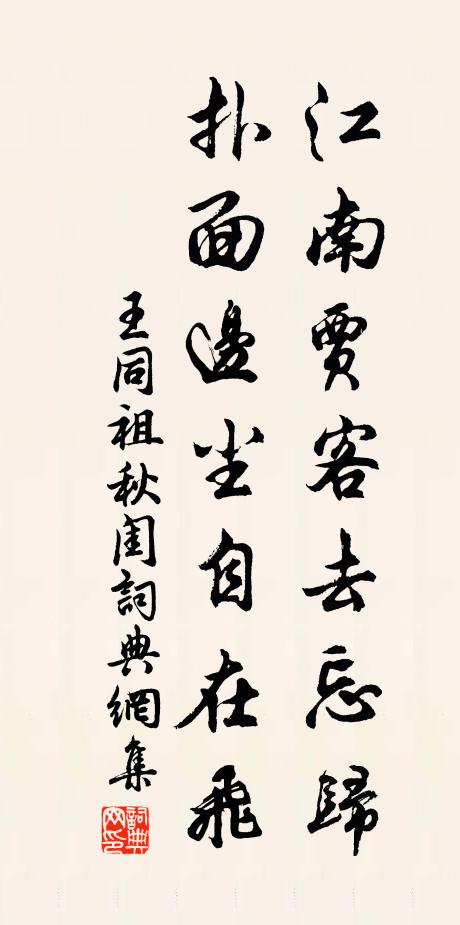 江南賈客去忘歸
扑面邊尘自在飛
王同祖秋闺詞典網集
詞典网印